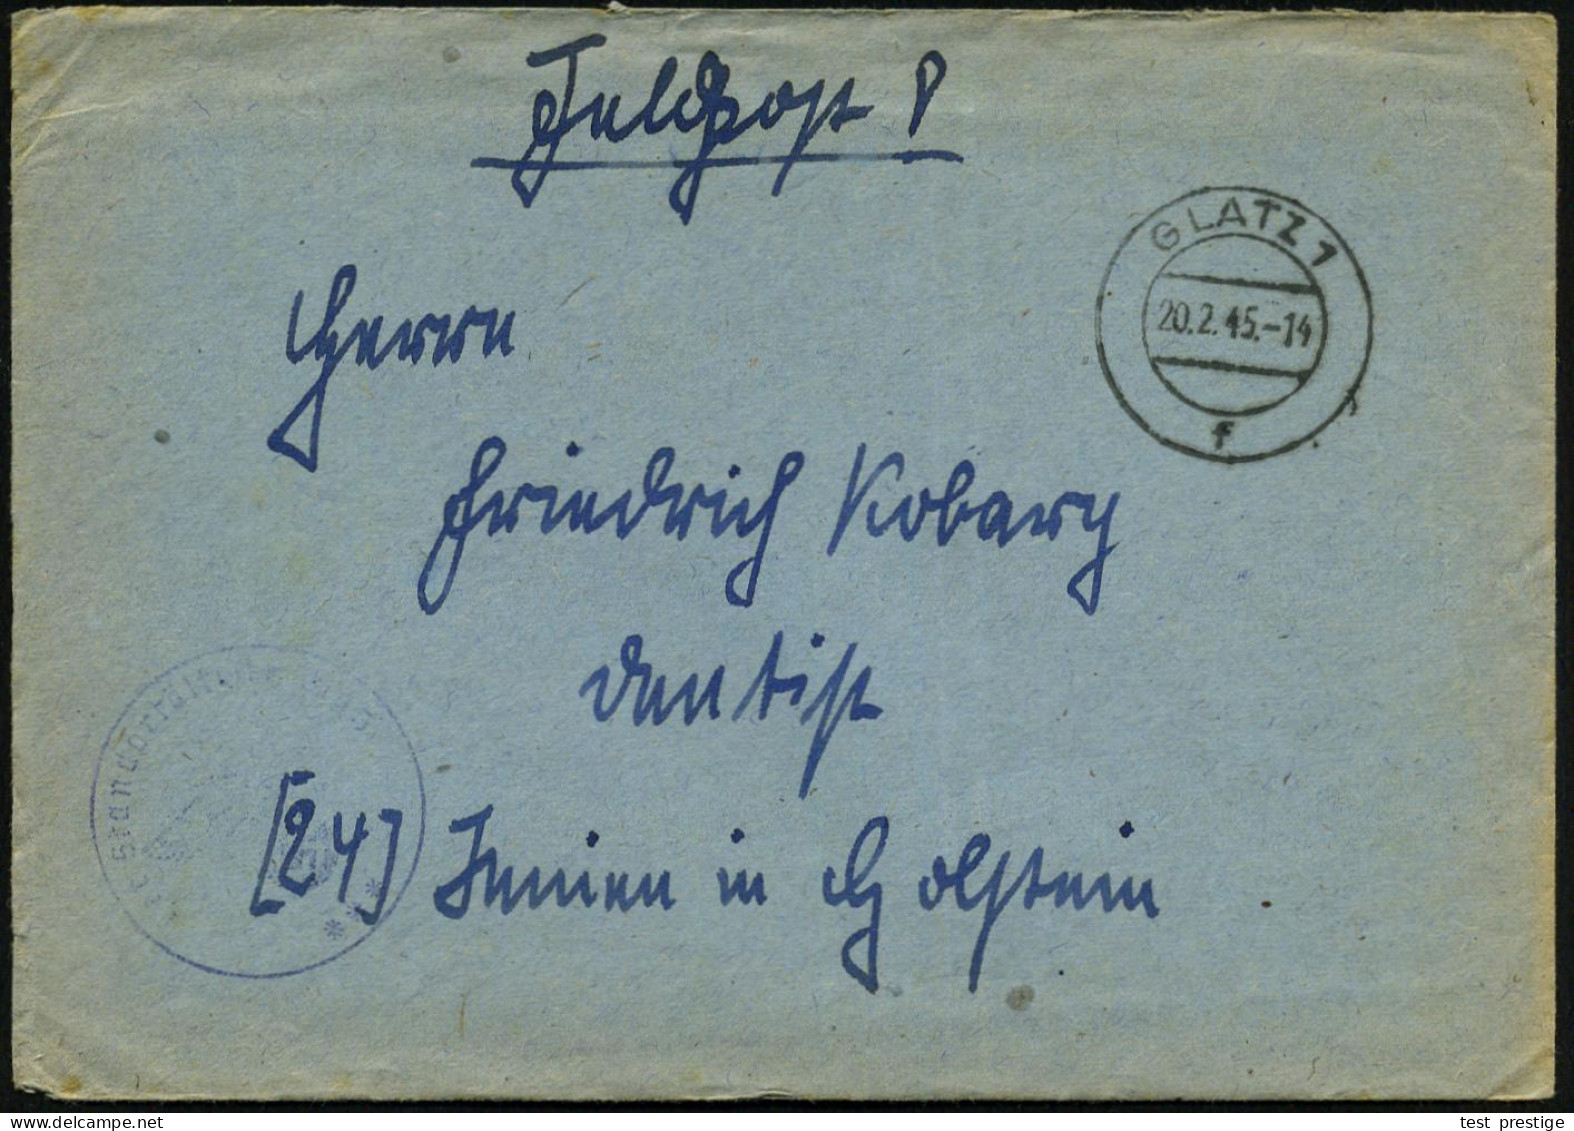 Feldpost !
GLATZ 1
20.2.45.-14
f
Herrn
Friedrich Kobarg
Dentist
[24] Innien in Holstein
www.delcampe.net
test_prestige